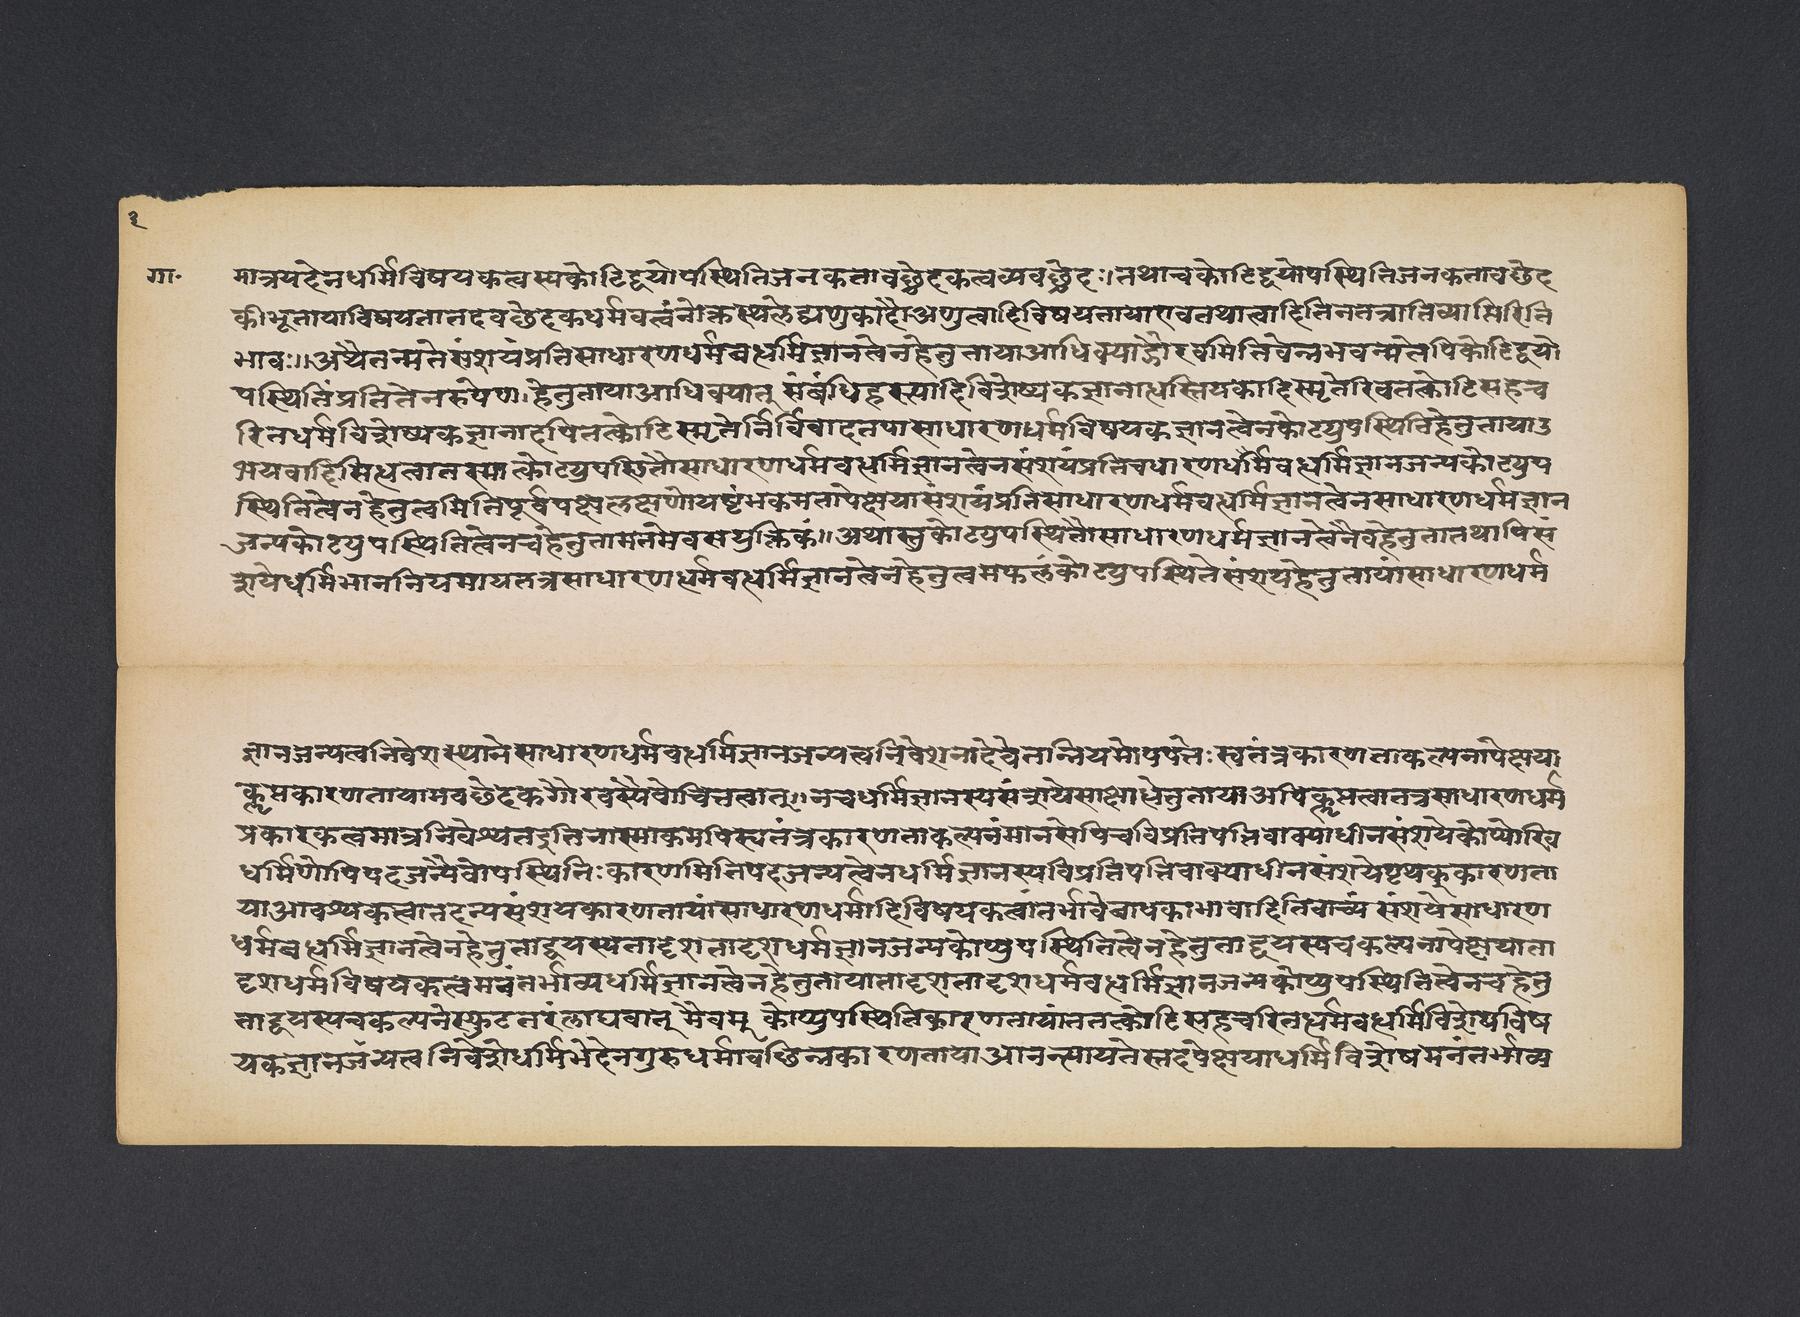 २
गा॰
मात्रयहेनधर्मिविषयकत्वस्यकोटिद्वयोपस्थितिजनकतावछेदकत्वव्यवछेदः।तथाचकोटिद्वयोपस्थितिजनकतावछेद
कीभूतायाविषयतातदवछेदकधर्मवत्वंनोक्तस्थलेद्यणुकादौअणुत्वादिविषयतायाएवतथात्वादितिनतत्रातिव्याप्तिरिति
भावः॥अथैतन्मतेसंशयंप्रतिसाधारणधर्मवद्धर्मिज्ञानत्वेनहेतुतायाआधिक्याद्गौरवमितिचेन्नभवन्मतेपिकोटिद्वयो
पस्थितिंप्रतितेनरूपेण।हेतुतायाआधिक्यात् संबंधिहस्त्यादिविशेष्यकज्ञानाद्धस्तिपकादिस्मृतेरिवतत्कोटिसहच
रितधर्मविशेष्यकज्ञानादपितत्कोटिस्मृतेर्निर्विवादतयासाधारणधर्मविषयकज्ञानत्वेनकोट्युपस्थितिहेतुतायाउ
भयवादिसिद्धत्वातस्मात्कोट्युपस्छितौसाधारणधर्मवद्धर्मिज्ञानत्वेनसंशयंप्रतिचधारणधर्मिवद्धर्मिज्ञानजन्यकोट्युप
स्थितित्वेनहेतुत्वमितिपूर्वपक्षलक्षणोयष्टंभकमतापेक्षयासंशयंप्रतिसाधारणधर्मवद्धर्मिज्ञानत्वेनसाधारणधर्मज्ञान
जन्यकोट्युपस्थितित्वेनचहेतुतामतमेवसयुक्तिकं॥अथास्तुकोट्युपस्थितौसाधारणधर्मज्ञानत्वेनैवहेतुतातथापिसं
शयेधर्मिभाननियमायतत्रसाधारणधर्मवद्धर्मिज्ञानत्वेनहेतुत्वमफलंकोट्युपस्थितेसंशयहेतुतायांसाधारणधर्म
ज्ञानजन्यत्वनिवेशस्थानेसाधारणधर्मवद्धर्मिज्ञानजन्यत्वनिवेशनादेवेतन्नियमोपपतेःस्वतंत्रकारणताकल्पनापेक्षया
कॢप्तकारणतायामवछेदकगौरवस्यैवोचितत्वात्॥नचधर्मिज्ञानस्यसंशयेसाक्षाद्धेतुतायाअपिकॢप्तत्वातत्रसाधारणधर्म
प्रकारकत्वमात्रनिवेश्यतइतिनास्माकमपिस्वतंत्रकारणताकल्पनंमानसेपिचविप्रतिपत्तिवाक्याधीनसंशयेकोप्योरिव
धर्मिणोपिपदजन्यैवोपस्थितिःकारणमितिपदजन्यत्वेनधर्मिज्ञानस्यविप्रतिपत्तिवाक्याधीनसंशयेपृथक्कारणता
याआवश्यकत्वात्तदन्यसंशयकारणतायांसाधारणधर्मादिविषयकत्वांतर्भावेबाधकाभावादितिवाच्यंसंशयेसाधारण
धर्मवद्धर्मिज्ञानत्वेनहेतुताद्वयस्यतादृशतादृशधर्मज्ञानजन्यकोप्युपस्थितित्वेनहेतुताद्वयस्यचकल्पनापेक्षयाता
दृशधर्मविषयकत्वमनंतर्भाव्यधर्मिज्ञानत्वेनहेतुतायातादृशतादृशधर्मवद्धर्मिज्ञानजन्यकोप्युपस्थितित्वेनचहेतु
ताद्वयस्यचकल्पनेस्फुटतरंलाघवात् मैवम् कोप्युपस्थितिकारणतायांततत्कोटिसहचरितधर्मवद्धर्मिविशेषविष
यकज्ञानजंन्यत्वनिवेशेधर्मिभेदेनगुरुधर्मावछिन्नकारणतायाआनन्त्यायतेस्तदपेक्षयाधर्मिविशेषमनंतर्भाव्य